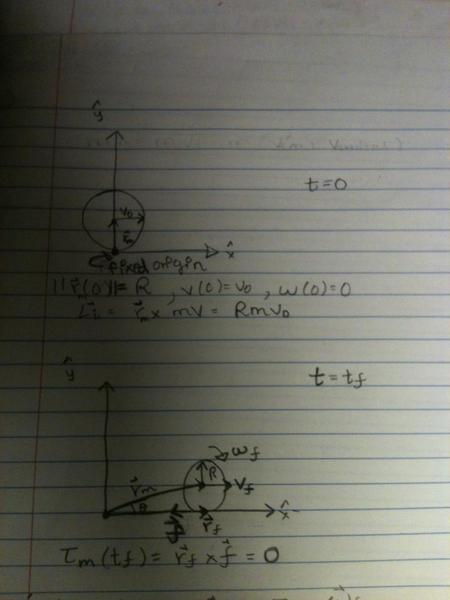 ŷ
t=0
v₀
r⃗ₘ
x̂
fixed origin
||r⃗ₘ(0)||= R , v(0)=v₀ , ω(0)=0
L⃗i = r⃗ₘ x mv = Rmv₀
ŷ
t=tf
ωf
R
r⃗m
vf
θ
x̂
r⃗f
τm(tf)= r⃗f x f⃗ = 0